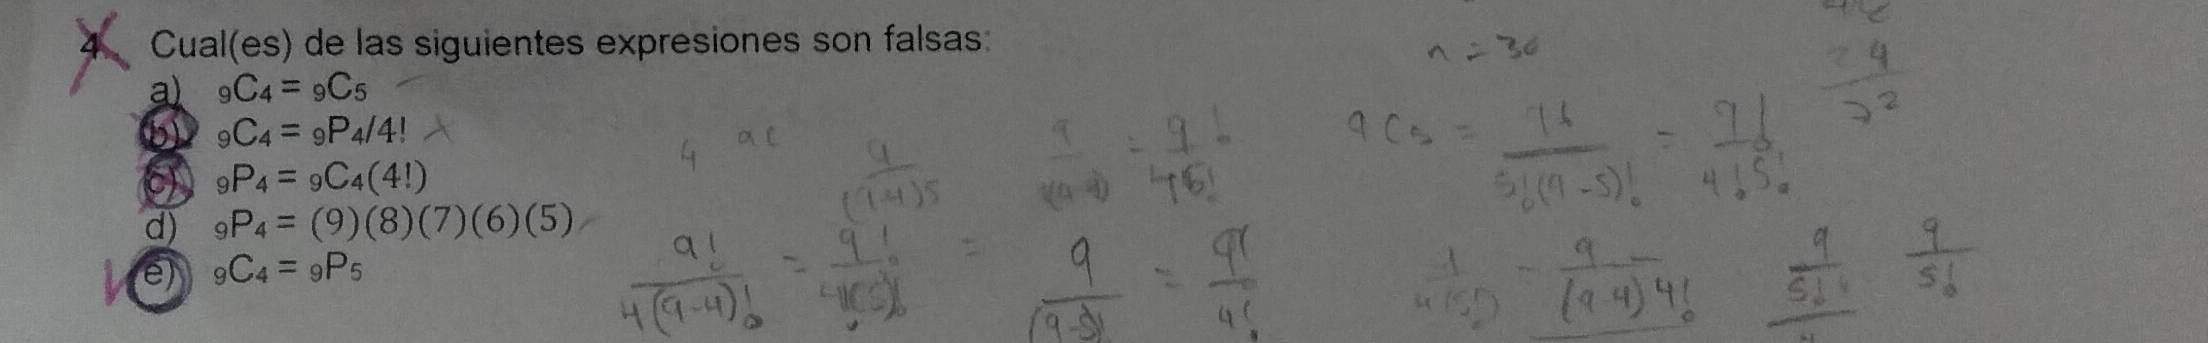 4. Cual(es) de las siguientes expresiones son falsas:
a) ₉C₄ = ₉C₅
b) ₉C₄ = ₉P₄/4!
c) ₉P₄ = ₉C₄(4!)
d) ₉P₄ = (9)(8)(7)(6)(5)
e) ₉C₄ = ₉P₅
n = 30
9C5 = 9! / 5!(9-5)! = 9! / 4!5!
9! / 4(9-4)! = 9! / 4!(5)! = 9 / (9-5)! = 9! / 4!
9 / (9-4)4!
9 / 5!
9 / 5!